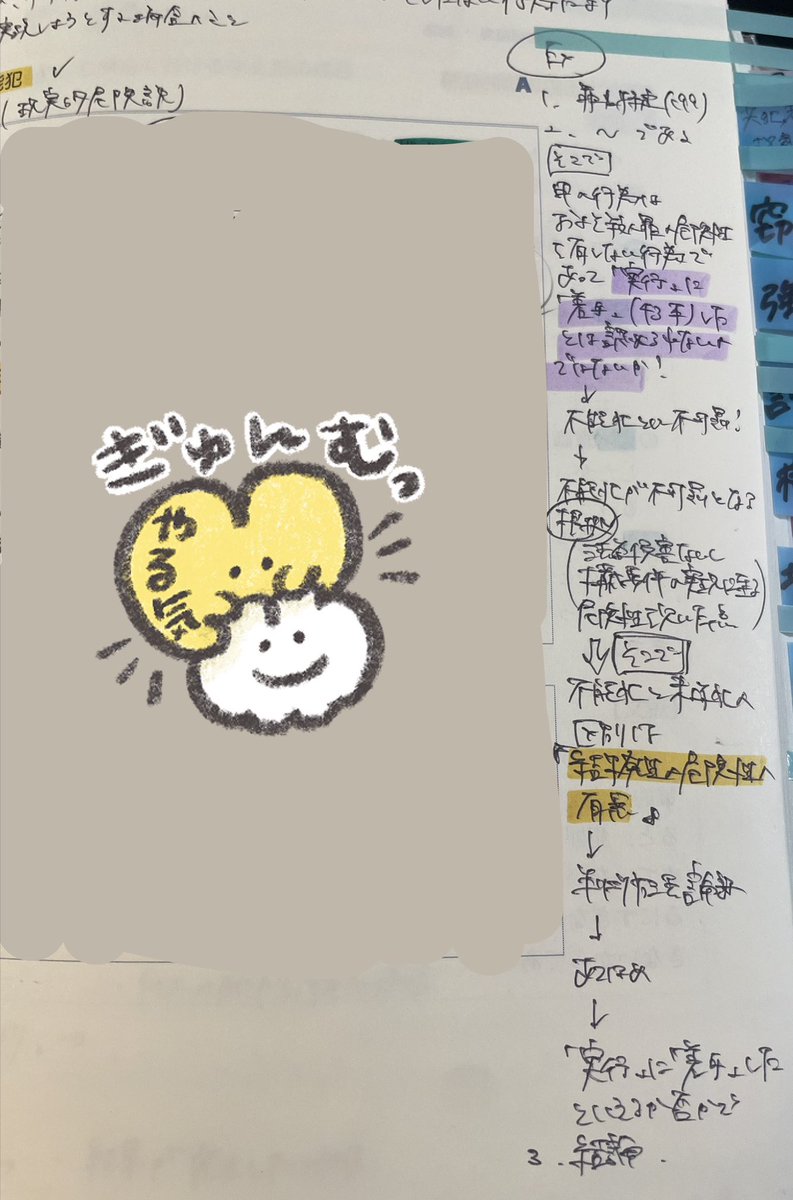 犯
(現実的危険説)
Ex
A
1. 罪名特定(199)
2. 〜である
そこで
甲の行為は
およそ殺人罪の危険性
を有しない行為で
あって「実行」に
「着手」(43本)した
とは認められないの
ではないか!
↓
不能犯として不可罰!
↓
不能犯が不可罰となる
根拠
法益侵害ないし
構成要件の実現に至る
危険性を欠いた点
そこで
不能犯と未遂犯の
区別は
「結果発生の危険性の
有無」
↓
判断方法論証
↓
あてはめ
↓
「実行」に「着手」した
といえるか否かで
3. 結論.
ぎゅんむっ
やる気
窃
強